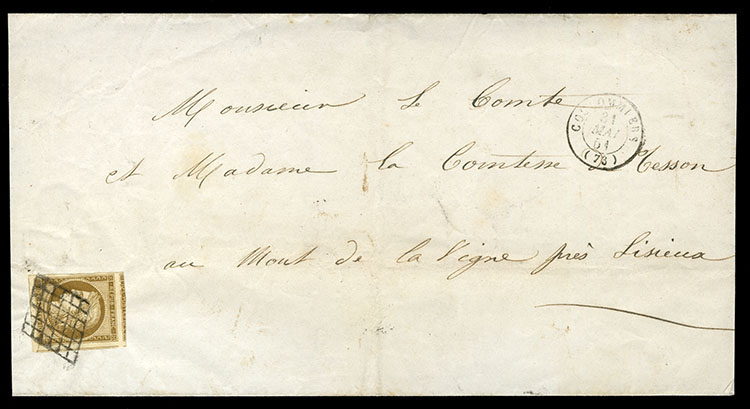 Monsieur le Comte
et Madame la Comtesse Tesson
au Mont de la Vigne près Lisieux
COULOMMIERS
21
MAI
51
(73)